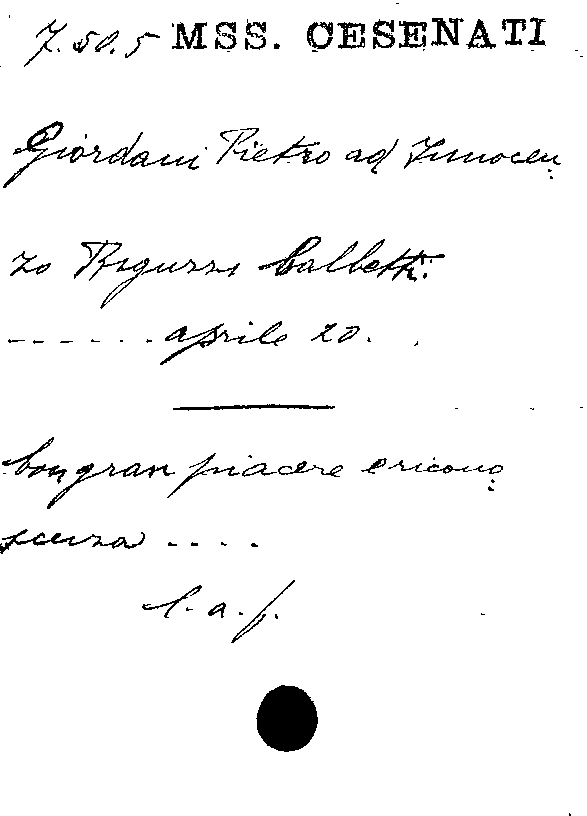 7.50.5 MSS. CESENATI
Giordani Pietro ad Innocen:
zo Piguzzi Calbetti.
------ aprile 20.
Con gran piacere e ricono:
scenza ----
l. a. f.